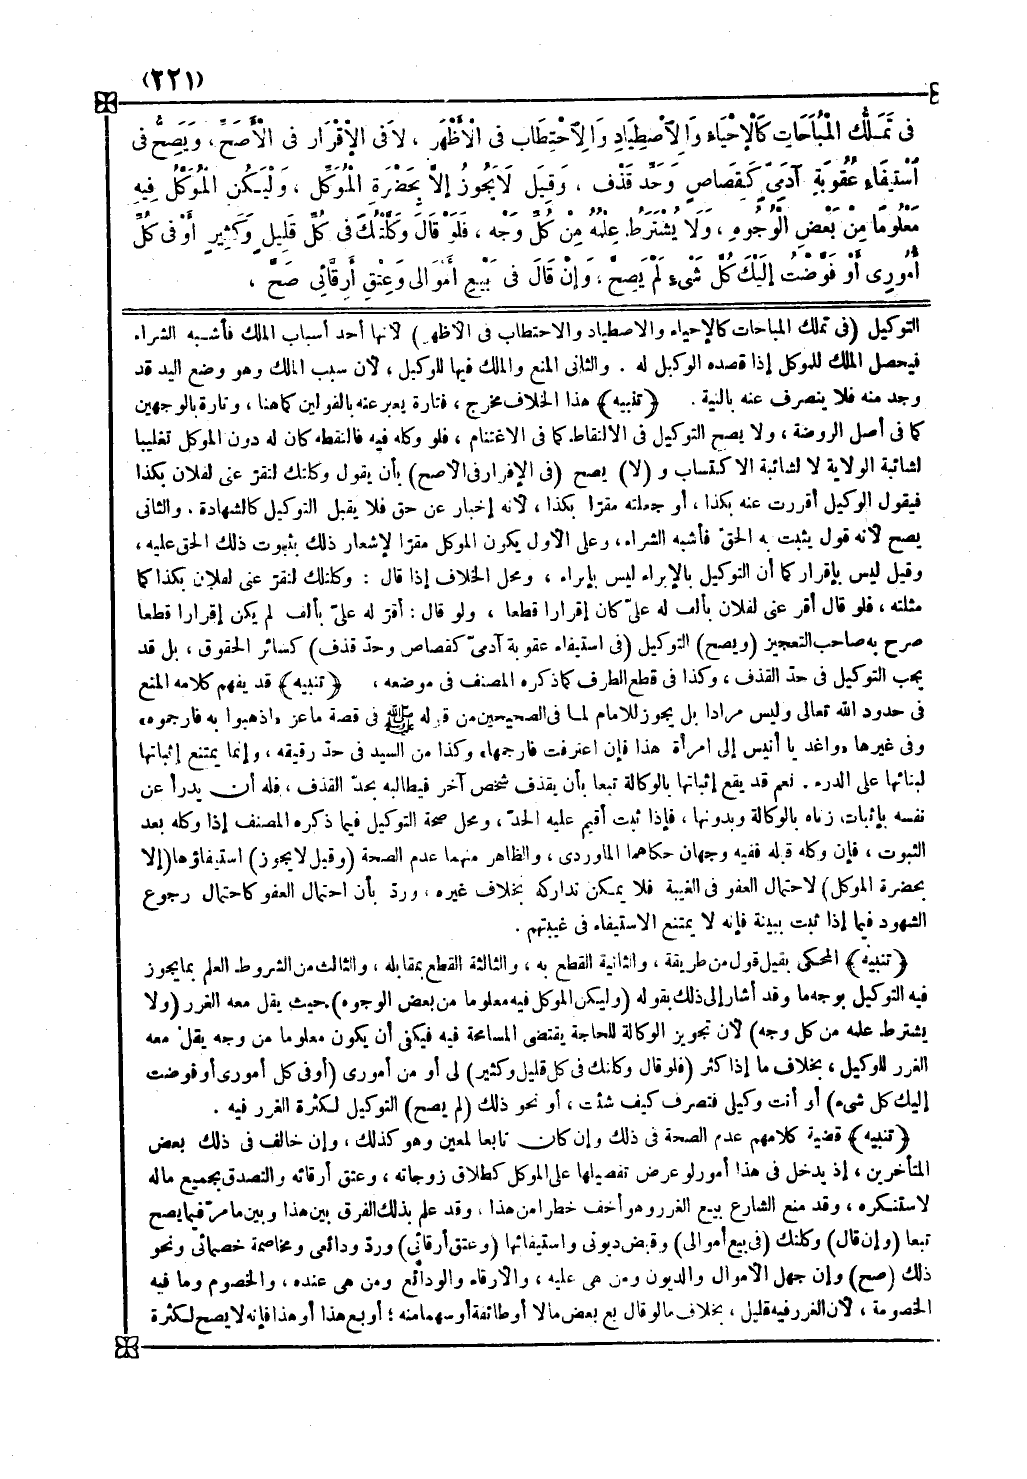 (٢٢١)
فى تَمَلُّكِ الْمُبَاحَاتِ كَالْإِحْيَاءِ وَالِاصْطِيَادِ وَالِاحْتِطَابِ فى الْأَظْهَرِ ، لاَ فى الْإِقْرَارِ فى الْأَصَحِّ ، وَيَصِحُّ فى
اسْتِيفَاءِ عُقُوبَةِ آدَمِىٍّ كَقِصَاصٍ وَحَدِّ قَذْفٍ ، وَقِيلَ لَا يَجُوزُ إِلاَّ بِحَضْرَةِ الْمُوَكِّلِ ، وَلْيَكُنِ الْمُوَكَّلُ فِيهِ
مَعْلُومًا مِنْ بَعْضِ الْوُجُوهِ ، وَلَا يُشْتَرَطُ عِلْمُهُ مِنْ كُلِّ وَجْهٍ ، فَلَوْ قَالَ وَكَّلْتُكَ فى كُلِّ قَلِيلٍ وَكَثِيرٍ أَوْ فى كُلِّ
أُمُورِى أَوْ فَوَّضْتُ إِلَيْكَ كُلَّ شَىْءٍ لَمْ يَصِحَّ ، وَإِنْ قَالَ فى بَيْعِ أَمْوَالى وَعِتْقِ أَرِقَّائِى صَحَّ ،
التوكيل (فى تملك المباحات كالإحياء والاصطياد والاحتطاب فى الأظهر) لأنها أحد أسباب الملك فأشبه الشراء
فيحصل الملك للموكل إذا قصده الوكيل له . والثانى المنع والملك فيها للوكيل ، لأن سبب الملك وهو وضع اليد قد
وجد منه فلا ينصرف عنه بالنية . ﴿تنبيه﴾ هذا الخلاف مخرج ، فتارة يعبر عنه بالقولين كما هنا ، وتارة بالوجهين
كما فى أصل الروضة ، ولا يصح التوكيل فى الالتقاط كما فى الاغتنام ، فلو وكله فيه فالتقطه كان له دون الموكل تغليبا
لشائبة الولاية لا لشائبة الاكتساب و (لا) يصح (فى الإقرار فى الأصح) بأن يقول وكلتك لتقرّ عنى لفلان بكذا
فيقول الوكيل أقررت عنه بكذا ، أو جعلته مقرّا بكذا ، لأنه إخبار عن حق فلا يقبل التوكيل كالشهادة . والثانى
يصح لأنه قول يثبت به الحق فأشبه الشراء ، وعلى الأول يكون الموكل مقرّا لإشعار ذلك بثبوت ذلك الحق عليه ،
وقيل ليس بإقرار كما أن التوكيل بالإبراء ليس بإبراء ، ومحل الخلاف إذا قال : وكلتك لتقرّ عنى لفلان بكذا كما
مثلته ، فلو قال أقر عنى لفلان بألف له علىّ كان إقرارا قطعا ، ولو قال : أقرّ له علىّ بألف لم يكن إقرارا قطعا
صرح به صاحب التعجيز (ويصح) التوكيل (فى استيفاء عقوبة آدمىّ كقصاص وحدّ قذف) كسائر الحقوق ، بل قد
يجب التوكيل فى حدّ القذف ، وكذا فى قطع الطرف كما ذكره المصنف فى موضعه ، ﴿تنبيه﴾ قد يفهم كلامه المنع
فى حدود الله تعالى وليس مرادا بل يجوز للامام لما فى الصحيحين من قوله ﷺ فى قصة ماعز «اذهبوا به فارجموه»
وفى غيرها «واغد يا أنيس إلى امرأة هذا فإن اعترفت فارجمها» وكذا من السيد فى حدّ رقيقه ، وإنما يمتنع إثباتها
لبنائها على الدرء . نعم قد يقع إثباتها بالوكالة تبعا بأن يقذف شخص آخر فيطالبه بحدّ القذف ، فله أن يدرأ عن
نفسه بإثبات زناه بالوكالة وبدونها ، فإذا ثبت أقيم عليه الحدّ ، ومحل صحة التوكيل فيما ذكره المصنف إذا وكله بعد
الثبوت ، فإن وكله قبله ففيه وجهان حكاهما الماوردى ، والظاهر منهما عدم الصحة (وقيل لا يجوز) استيفاؤها (إلا
بحضرة الموكل) لاحتمال العفو فى الغيبة فلا يمكن تداركه بخلاف غيره ، وردّ بأن احتمال العفو كاحتمال رجوع
الشهود فيما إذا ثبت ببينة فإنه لا يمتنع الاستيفاء فى غيبتهم .
﴿تنبيه﴾ المحكى بقيل قول من طريقة ، والثانية القطع به ، والثالثة القطع بمقابله ، والثالث من الشروط العلم بما يجوز
فيه التوكيل بوجه ما وقد أشار إلى ذلك بقوله (وليكن الموكل فيه معلوما من بعض الوجوه) حيث يقل معه الغرر (ولا
يشترط علمه من كل وجه) لأن تجويز الوكالة للحاجة يقتضى المسامحة فيه فيكفى أن يكون معلوما من وجه يقلّ معه
الغرر للوكيل ، بخلاف ما إذا كثر (فلو قال وكلتك فى كل قليل وكثير) لى أو من أمورى (أو فى كل أمورى أو فوضت
إليك كل شىء) أو أنت وكيلى فتصرف كيف شئت ، أو نحو ذلك (لم يصح) التوكيل لكثرة الغرر فيه .
﴿تنبيه﴾ قضية كلامهم عدم الصحة فى ذلك وإن كان تابعا لمعين وهو كذلك ، وإن خالف فى ذلك بعض
المتأخرين ، إذ يدخل فى هذا أمور لو عرض تفصيلها على الموكل كطلاق زوجاته ، وعتق أرقائه والتصدق بجميع ماله
لاستنكره ، وقد منع الشارع بيع الغرر وهو أخف خطرا من هذا ، وقد علم بذلك الفرق بين هذا وبين ما مرّ فيما يصح
تبعا (وإن قال) وكلتك (فى بيع أموالى) وقبض ديونى واستيفائها (وعتق أرقائى) وردّ ودائعى ومخاصمة خصمائى ونحو
ذلك (صح) وإن جهل الأموال والديون ومن هى عليه ، والأرقاء والودائع ومن هى عنده ، والخصوم وما فيه
الخصومة ، لأن الغرر فيه قليل ، بخلاف ما لو قال بع بعض مالا أو طائفة أو سهما منه ؛ أو بع هذا أو هذا فإنه لا يصح لكثرة